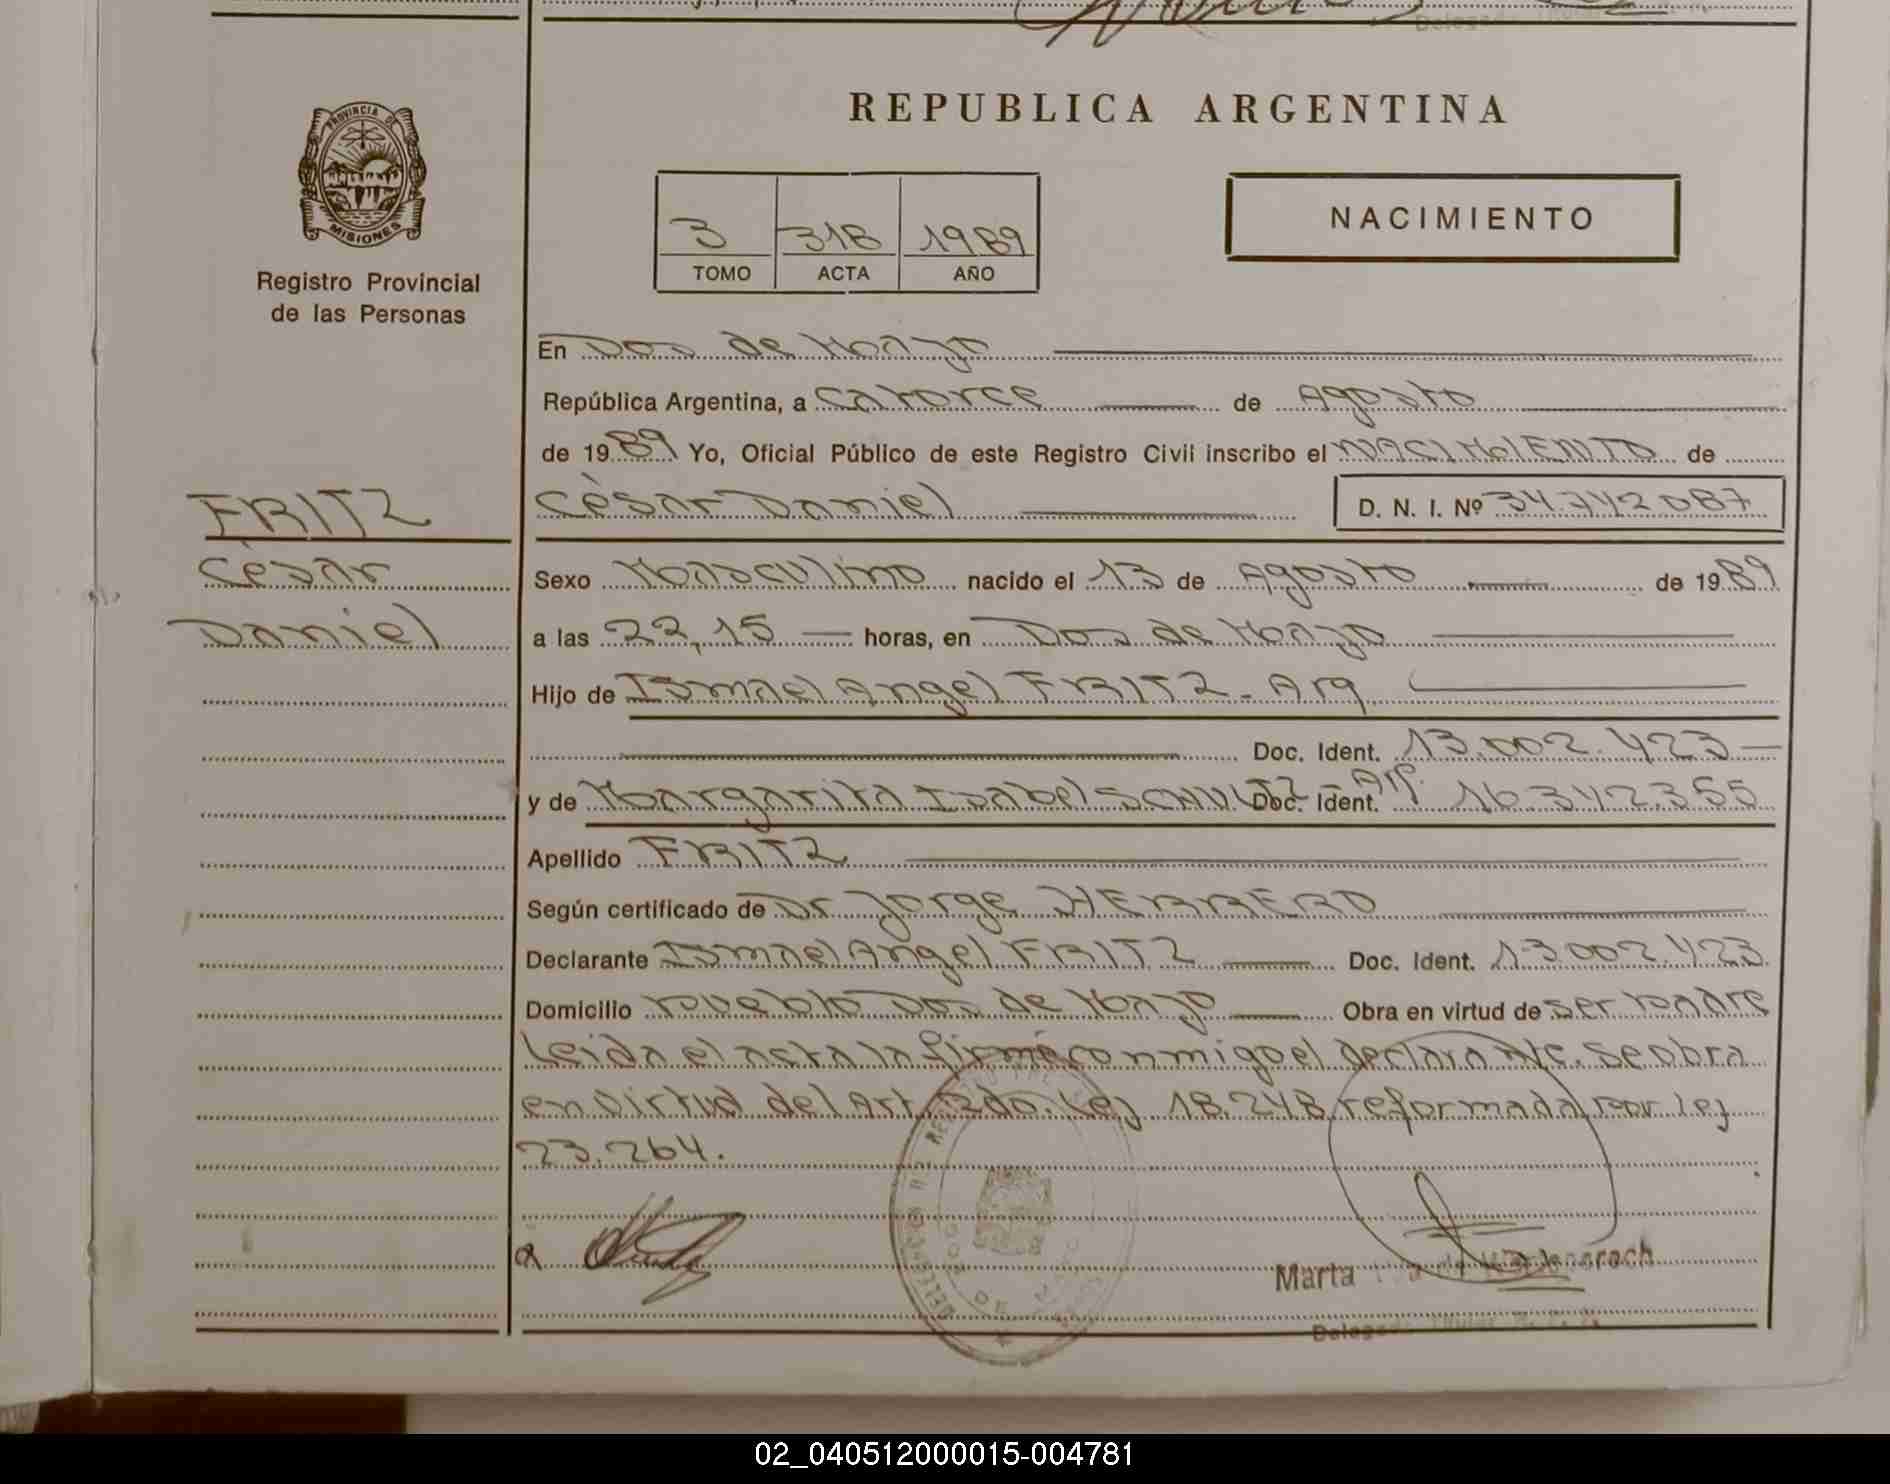 REPUBLICA ARGENTINA
PROVINCIA DE
MISIONES
Registro Provincial
de las Personas
3 318 1989
TOMO ACTA AÑO
NACIMIENTO
En Dos de Mayo
República Argentina, a catorce de Agosto
de 1989 Yo, Oficial Público de este Registro Civil inscribo el NACIMIENTO de
FRITZ
César Daniel D. N. I. Nº 34.742.087
César
Daniel
Sexo Masculino nacido el 13 de Agosto de 1989
a las 22,15 horas, en Dos de Mayo
Hijo de Ismael Angel FRITZ - Arg
Doc. Ident. 13.002.423
y de Margarita Isabel SCHULTZ - Arg. Doc. Ident. 16.342.355
Apellido FRITZ
Según certificado de Dr Jorge HERRERO
Declarante Ismael Angel FRITZ Doc. Ident. 13.002.423
Domicilio Pueblo Dos de Mayo Obra en virtud de ser Padre
Leida el acta la firmó conmigo el declarante. Se obra
en virtud del Art. 2do. Ley 18.248 reformada por ley
23.264.
DE MAYO
Marta
Delegada Titular
02_040512000015-004781